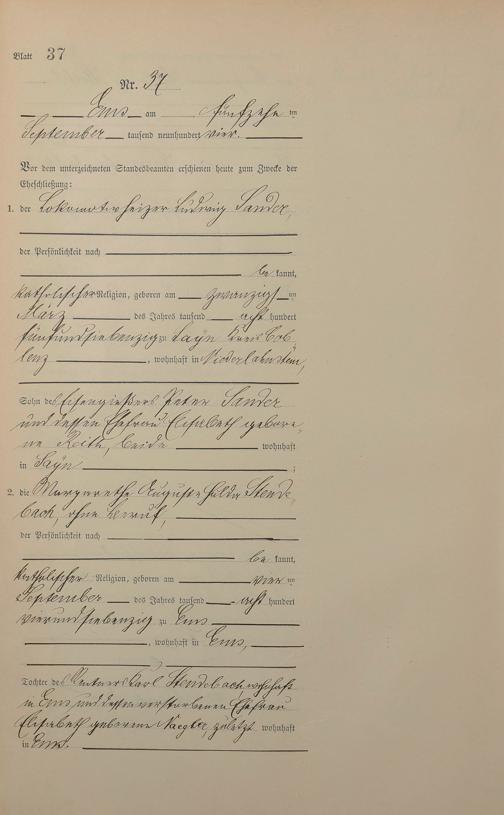 Blatt 37
Nr. 37
Ems am fünfzehnten
September tausend neunhundert vier.
Vor dem unterzeichneten Standesbeamten erschienen heute zum Zwecke der
Eheschließung:
1. der Lokomotivheizer Ludwig Sander,
der Persönlichkeit nach
bekannt,
katholischer Religion, geboren am zwanzigsten
März des Jahres tausend acht hundert
fünfundsiebenzig zu Sayn Kreis Cob-
lenz, wohnhaft in Niederlahnstein,
Sohn des Eisengießers Peter Sander
und dessen Ehefrau Elisabeth gebore-
ne Reith, beide wohnhaft
in Sayn;
2. die Margarethe Auguste Hilda Stende-
bach, ohne Beruf,
der Persönlichkeit nach
bekannt,
katholischer Religion, geboren am vierten
September des Jahres tausend acht hundert
vierundsiebenzig zu Ems
, wohnhaft in Ems,
Tochter des Rentners Karl Stendebach wohnhaft
in Ems und dessen verstorbenen Ehefrau
Elisabeth geborene zuletzt wohnhaft
in Ems.